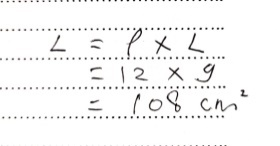 L = P x L
= 12 x 9
= 108 cm²